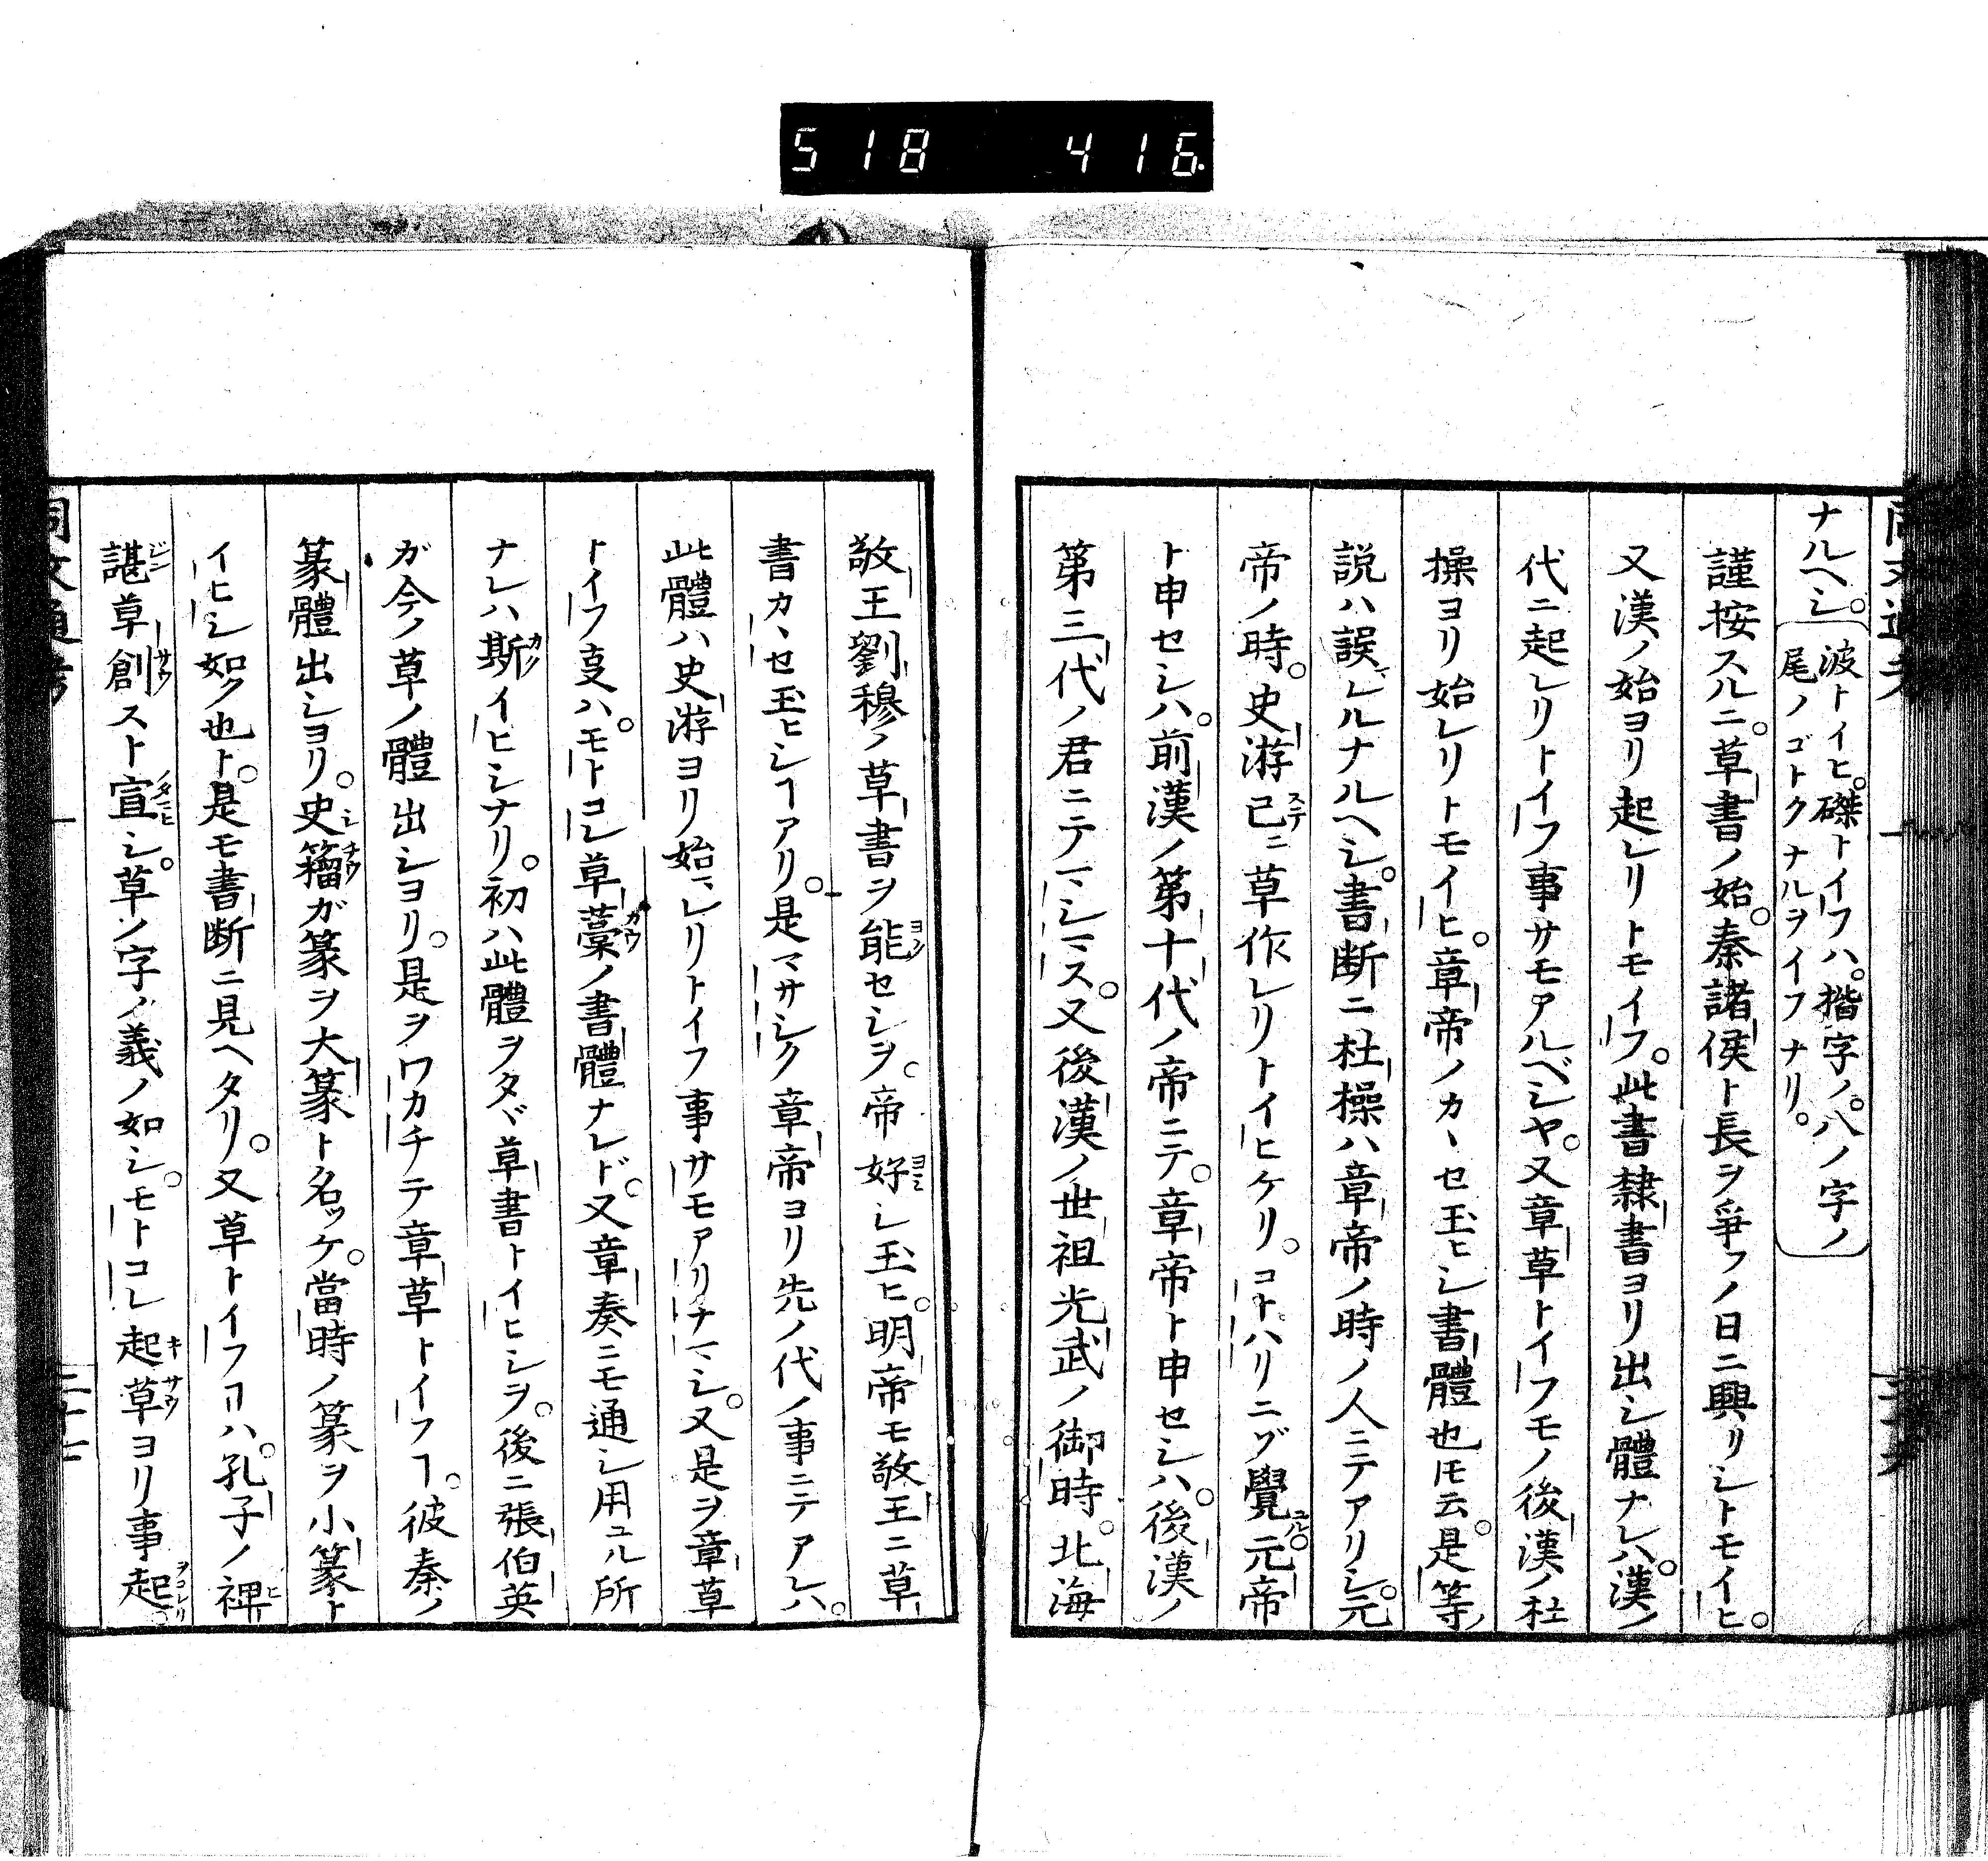 518 416
ナルヘシ。
波トイヒ。磔トイフハ。揩字ノ。八ノ字ノ
尾ノゴトクナルヲイフナリ。
謹按スルニ。草書ノ始。秦諸侯ト長ヲ爭フノ日ニ興リシトモイヒ。
又漢ノ始ヨリ起レリトモイフ。此書隸書ヨリ出シ體ナレハ。漢ノ
代ニ起レリトイフ事サモアルベシヤ。又章草トイフモノ後漢ノ杜
操ヨリ始レリトモイヒ。章帝ノカヽセ玉ヒシ書體也𪜈云。是等ノ
説ハ誤レルナルヘシ。書断ニ杜操ハ章帝ノ時ノ人ニテアリシ。元
帝ノ時。史游已ステニ草作レリトイヒケリ。コトハリニヅ覺ユル。元帝
ト申セシハ。前漢ノ第十代ノ帝ニテ。章帝ト申セシハ。後漢ノ
第三代ノ君ニテマシマス。又後漢ノ世祖光武ノ御時。北海
敬王劉穆ノ草書ヲ能ヨクセシヲ。帝好ヨミシ玉ヒ。明帝モ敬王ニ草
書カヽセ玉ヒシヿアリ。是マサシク章帝ヨリ先ノ代ノ事ニテアレハ。
此體ハ史游ヨリ始マレリトイフ事サモアリナマシ。又是ヲ章草
トイフ叓ハ。モトコレ草藁カウノ書體ナレド。又章奏ニモ通シ用ユル所
ナレハ斯カクイヒシナリ。初ハ此體ヲタヾ草書トイヒシヲ。後ニ張伯英
ガ今ノ草ノ體出シヨリ。是ヲワカチテ章草トイフヿ。彼秦ノ
篆體出シヨリ。史シ籀チウガ篆ヲ大篆ト名ツケ。當時ノ篆ヲ小篆ト
イヒシ如ク也ト。是モ書断ニ見ヘタリ。又草トイフヿハ。孔子ノ裨ヒ
諶ジン草創サウスト宣ノタマヒシ。草ノ字ノ義ノ如シ。モトコレ起キ草サウヨリ事起ヲコレリ。
同文通考
二十七